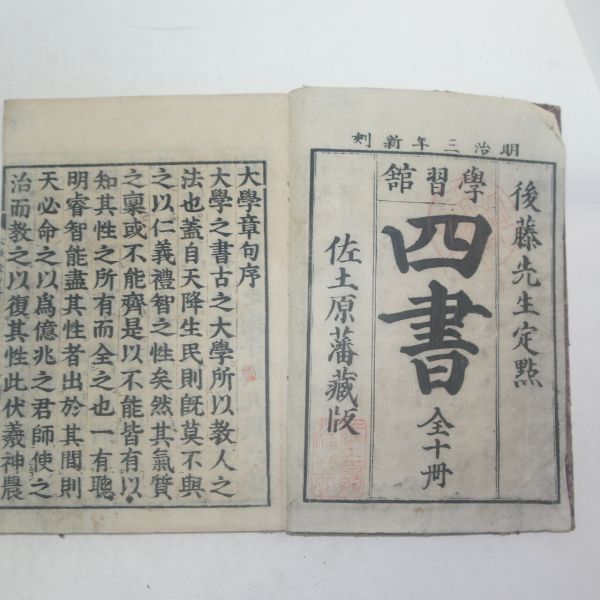 明治三年新刻
後藤先生定點
學習館
四書
全十冊
佐土原藩藏版
大學章句序
大學之書古之大學所以教人之
法也蓋自天降生民則旣莫不與
之以仁義禮智之性矣然其氣質
之稟或不能齊是以不能皆有以
知其性之所有而全之也一有聰
明睿智能盡其性者出於其閒則
天必命之以爲億兆之君師使之
治而教之以復其性此伏羲神農